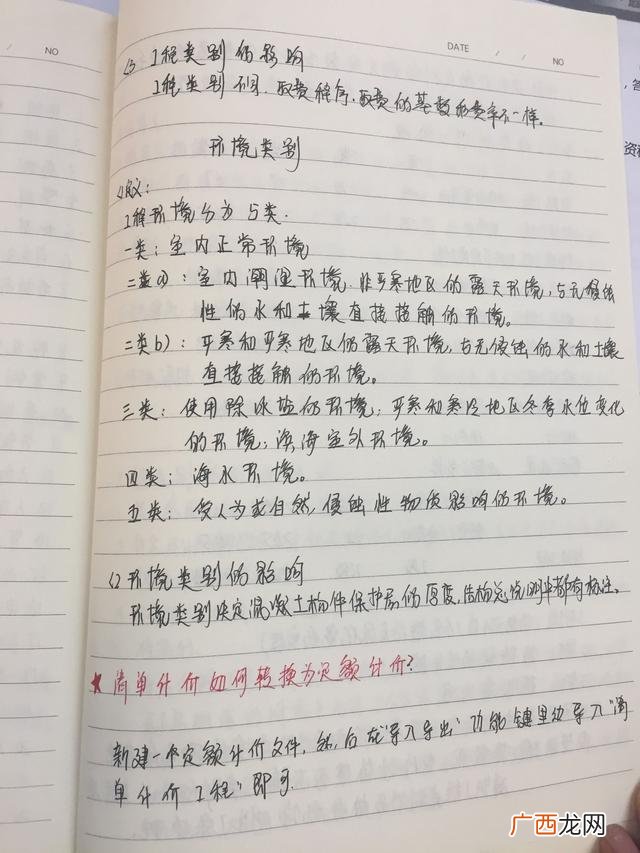 NO
DATE / / NO
(3 工程类别的影响
工程类别不同,取费程序,取费的基数和费率不一样。
环境类别
(1 定义:
工程环境分为5类.
一类:室内正常环境
二类a):室内潮湿环境,非严寒地区的露天环境,与无侵蚀
性的水和土壤直接接触的环境。
二类b):严寒和严寒地区的露天环境,与无侵蚀的水和土壤
直接接触的环境。
三类:使用除冰盐的环境;严寒和寒冷地区冬季水位变化
的环境;滨海室外环境。
四类:海水环境。
五类:受人为或自然,侵蚀性物质影响的环境。
(2 环境类别的影响
环境类别决定混凝土构件保护层的厚度,结构总说明中都有标注。
★清单计价如何转换为定额计价?
新建一个定额计价文件,然后在“导入导出”功能键里边导入“清
单计价工程”即可.
广西龙网